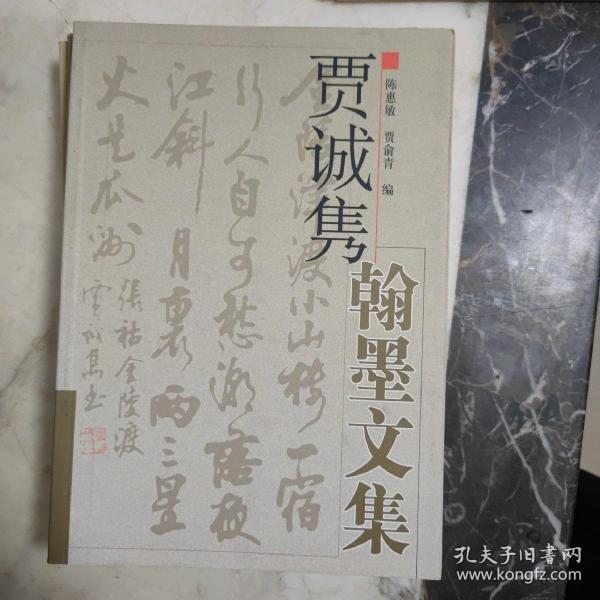 贾诚隽
翰墨文集
陈惠敏 贾俞青 编
金陵津渡小山楼一宿
行人自可愁潮落夜
江斜月里两三星
火是瓜洲
张祜金陵渡
贾诚隽书
孔夫子旧书网
www.kongfz.com